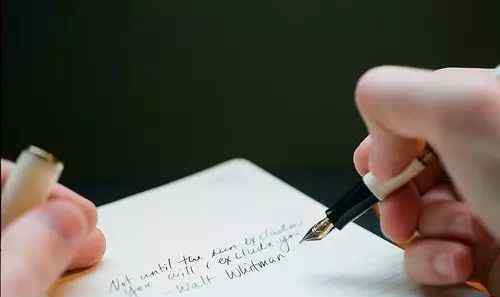 Not until the sun excludes
you will I exclude you
- Walt Whitman